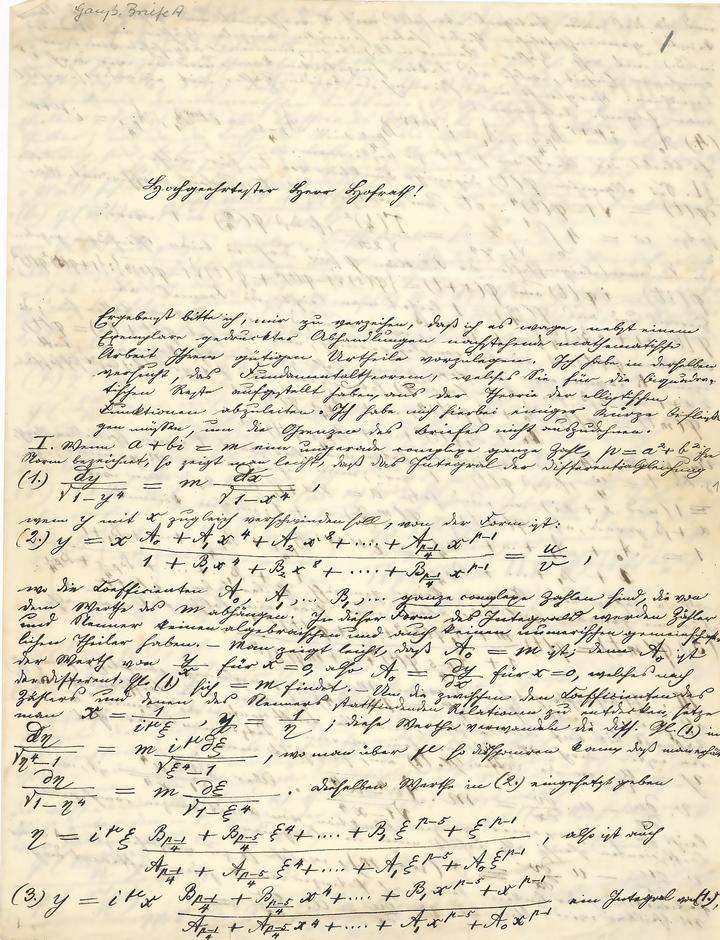 Gauß, Briefe A
1
Hochgeehrtester Herr Hofrath!
Ergebenst bitte ich, mir zu verzeihen, daß ich es wage, nebst einem
Exemplare gedruckter Abhandlungen nachstehende mathematische
Arbeit Ihrem gütigen Urtheile vorzulegen. Ich habe in derselben
versucht, das Fundamentaltheorem, welches Sie für die biquadra-
tischen Reste aufgestellt haben, aus der Theorie der elliptischen
Funktionen abzuleiten. Ich habe mich hierbei einiger Kürze befleißi-
gen müssen, um die Grenzen des Briefes nicht auszudehnen.
I. Wenn a+bi = m eine ungerade complexe ganze Zahl, p = a²+b² ihre
Norm bezeichnet, so zeigt man leicht, daß das Integral der Differentialgleichung
(1.) dy/√(1−y⁴) = m dx/√(1−x⁴),
wenn y mit x zugleich verschwinden soll, von der Form ist:
(2.) y = x (A₀ + A₁x⁴ + A₂x⁸ + .... + A_{(p−1)/4} x^{p−1})/(1 + B₁x⁴ + B₂x⁸ + .... + B_{(p−1)/4} x^{p−1}) = u/v,
wo die Coefficienten A₀, A₁ ... B₁, ... ganze complexe Zahlen sind, die von
dem Werthe des m abhängen. In dieser Form des Integrals werden Zähler
und Nenner keinen algebraischen und auch keinen numerischen gemeinschaft-
lichen Theiler haben. – Man zeigt leicht, daß A₀ = m ist; denn A₀ ist
der Werth von y/x für x=0, also A₀ = dy/dx für x=0, welches nach
der different. Gl. (1) sich = m findet. – Um die zwischen den Coefficienten des
Zählers und denen des Nenners stattfindenden Relationen zu entdecken, setze
man x = 1/(i^μ ξ), y = 1/η; diese Werthe verwandeln die diff. Gl. (1) in
dη/√(η⁴−1) = m i^μ dξ/√(ξ⁴−1), wo man über μ so disponiren kann, daß man erhält
dη/√(1−η⁴) = m dξ/√(1−ξ⁴). Dieselben Werthe in (2.) eingesetzt geben
η = i^μ ξ (B_{(p−1)/4} + B_{(p−5)/4} ξ⁴ + .... + B₁ ξ^{p−5} + ξ^{p−1})/(A_{(p−1)/4} + A_{(p−5)/4} ξ⁴ + .... + A₁ ξ^{p−5} + A₀ ξ^{p−1}), also ist auch
(3.) y = i^μ x (B_{(p−1)/4} + B_{(p−5)/4} x⁴ + .... + B₁ x^{p−5} + x^{p−1})/(A_{(p−1)/4} + A_{(p−5)/4} x⁴ + .... + A₁ x^{p−5} + A₀ x^{p−1}) ein Integral von (1.),